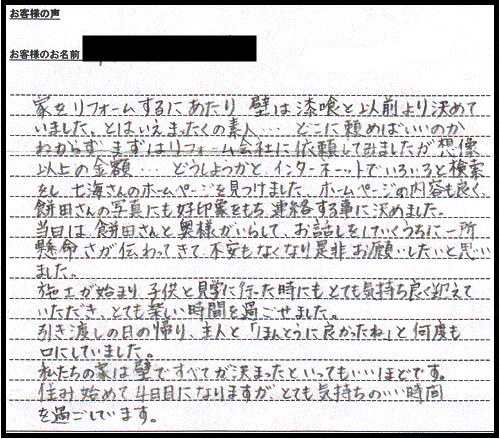 お客様の声
お客様のお名前
家をリフォームするにあたり 壁は漆喰と以前より決めて
いました。とはいえまったくの素人… どこに頼めばいいのか
わからず まずはリフォーム会社に依頼してみましたが想像
以上の金額… どうしようかと、インターネットでいろいろと検索
をし 七海さんのホームページを見つけました。ホームページの内容も良く、
餅田さんの写真にも好印象をもち 連絡する事に決めました。
当日は、餅田さんと奥様がいらして、お話しをしていくうちに一所
懸命さが伝わってきて 不安もなくなり是非お願いしたいと思い
ました。
施工が始まり 子供と見学に行った時にもとても気持ち良く迎えて
いただき、とても楽しい時間を過ごせました。
引き渡しの日の帰り、主人と「ほんとうに良かったね」と何度も
口にしていました。
私たちの家は壁ですべてが決まったといってもいいほどです。
住み始めて4日目になりますが、とても気持ちのいい時間
を過ごしています。